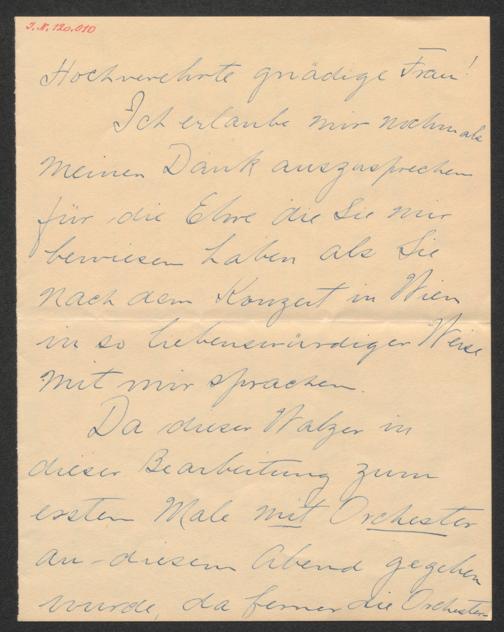 I.N. 120.010
Hochverehrte gnädige Frau!
Ich erlaube mir nochmals
meinen Dank auszusprechen
für die Ehre die Sie mir
bewiesen haben als Sie
nach dem Konzert in Wien
in so liebenswürdiger Weise
mit mir sprachen.
Da dieser Walzer in
dieser Bearbeitung zum
ersten Male mit Orchester
an diesem Abend gegeben
wurde, da ferner die Orchester-